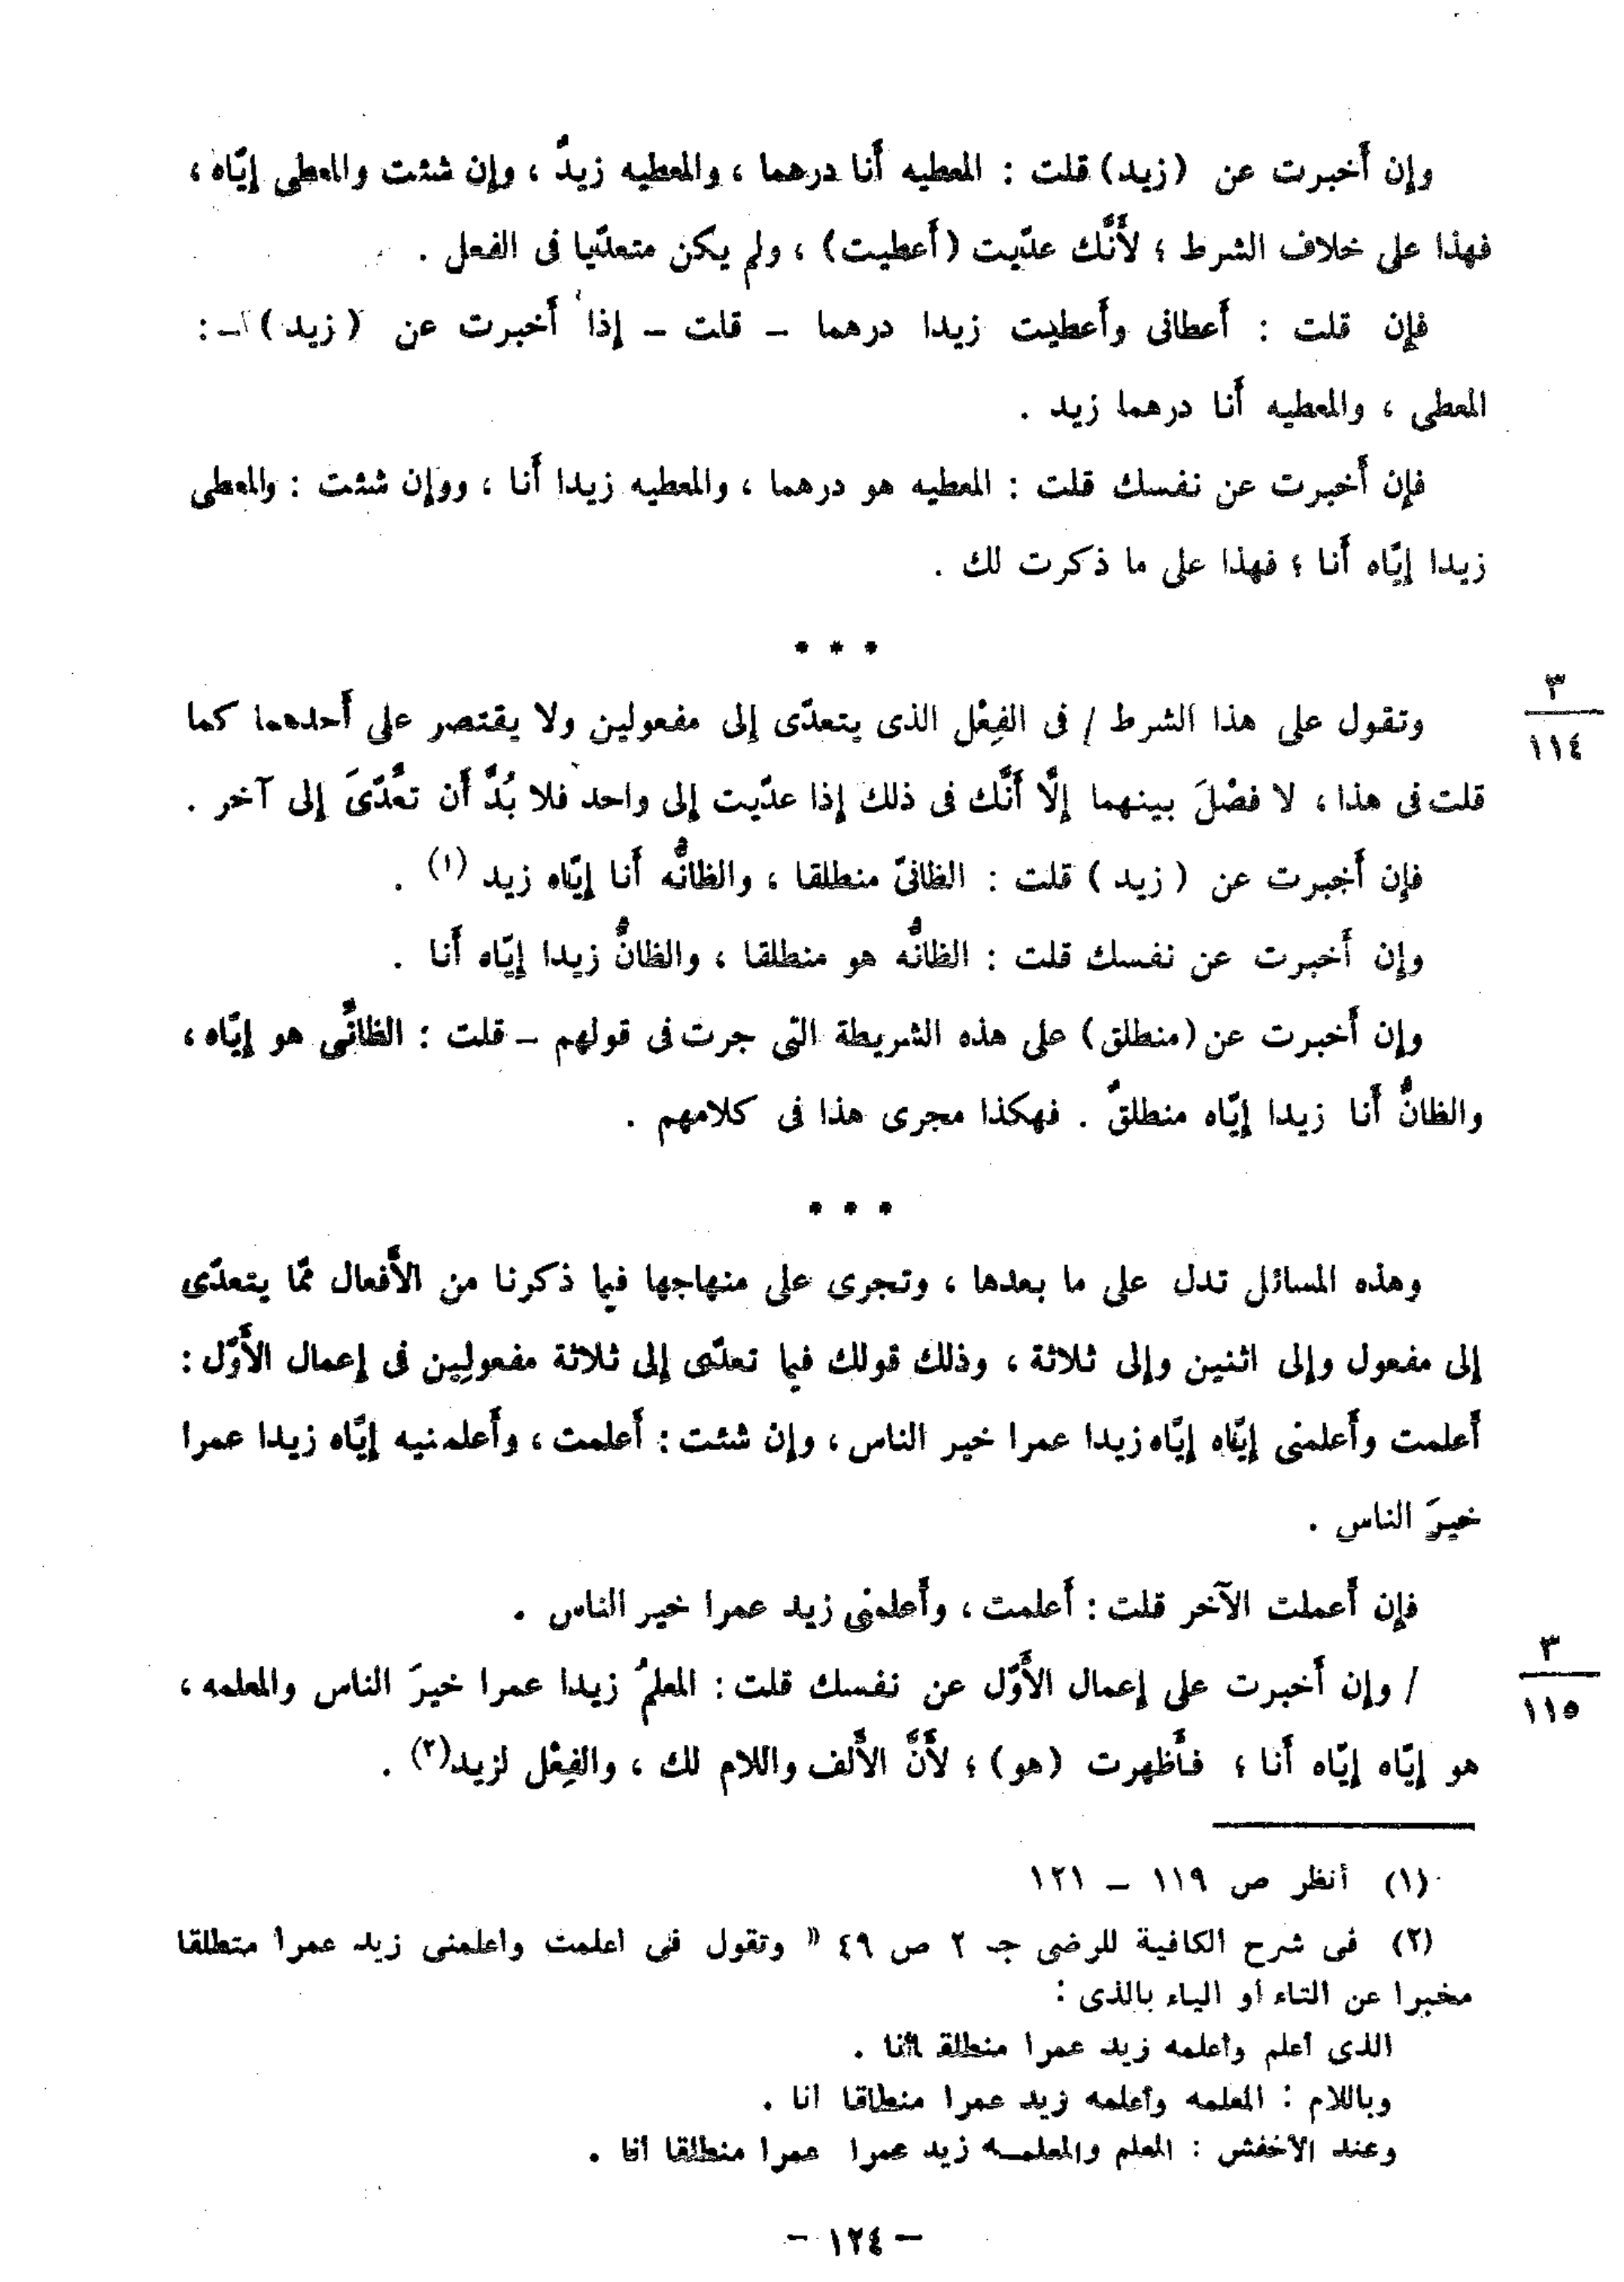 وإن أخبرت عن (زيد) قلت : المعطيه أنا درهما ، والمعطيه زيدٌ ، وإن شئت والمعطى إيّاه ،
فهذا على خلاف الشرط ؛ لأَنَّك عدّيت (أعطيت) ، ولم يكن متعدّيا فى الفعل .
فإن قلت : أعطانى وأعطيت زيدا درهما – قلت – إذا أخبرت عن (زيد) – :
المعطى ، والمعطيه أنا درهما زيد .
فإن أخبرت عن نفسك قلت : المعطيه هو درهما ، والمعطيه زيدا أنا ، ووإن شئت : والمعطى
زيدا إيّاه أنا ؛ فهذا على ما ذكرت لك .
* * *
٣
١١٤
وتقول على هذا الشرط / فى الفِعْل الذى يتعدّى إلى مفعولين ولا يقتصر على أحدهما كما
قلت فى هذا ، لا فصْلَ بينهما إلَّا أَنَّك فى ذلك إذا عدّيت إلى واحد فلا بُدَّ أن تعُدّىَ إلى آخر .
فإن أخبرت عن ( زيد ) قلت : الظانىّ منطلقا ، والظانُّه أنا إيّاه زيد (١) .
وإن أخبرت عن نفسك قلت : الظانُّه هو منطلقا ، والظانُّ زيدا إيّاه أنا .
وإن أخبرت عن (منطلق) على هذه الشريطة التى جرت فى قولهم – قلت : الظانُّى هو إيّاه ،
والظانُّ أنا زيدا إيّاه منطلقٌ . فهكذا مجرى هذا فى كلامهم .
* * *
وهذه المسائل تدل على ما بعدها ، وتجرى على منهاجها فيما ذكرنا من الأفعال ممّا يتعدّى
إلى مفعول وإلى اثنين وإلى ثلاثة ، وذلك قولك فيما تعدّى إلى ثلاثة مفعولِين فى إعمال الأوّل :
أعلمت وأعلمنى إيّاه إيّاه زيدا عمرا خير الناس ، وإن شئت : أعلمت ، وأعلمنيه إيّاه زيدا عمرا
خيرَ الناس .
فإن أعملت الآخر قلت : أعلمت ، وأعلمنى زيد عمرا خير الناس .
٣
١١٥
/ وإن أخبرت على إعمال الأوّل عن نفسك قلت : المعلمُ زيدا عمرا خيرَ الناس والمعلمه ،
هو إيّاه إيّاه أنا ؛ فأظهرت (هو) ؛ لأَنَّ الألف واللام لك ، والفِعْل لزيد(٢) .
(١) أنظر ص ١١٩ – ١٢١
(٢) فى شرح الكافية للرضى جـ ٢ ص ٤٩ « وتقول فى اعلمت واعلمنى زيد عمرا متطلقا
مخبرا عن التاء أو الياء بالذى :
الذى أعلم وأعلمه زيد عمرا منطلقا أنا .
وباللام : المعلمه وأعلمه زيد عمرا منطاقا أنا .
وعند الأخفش : المعلم والمعلمــه زيد عمرا عمرا منطلقا أنا .
– ١٢٤ –